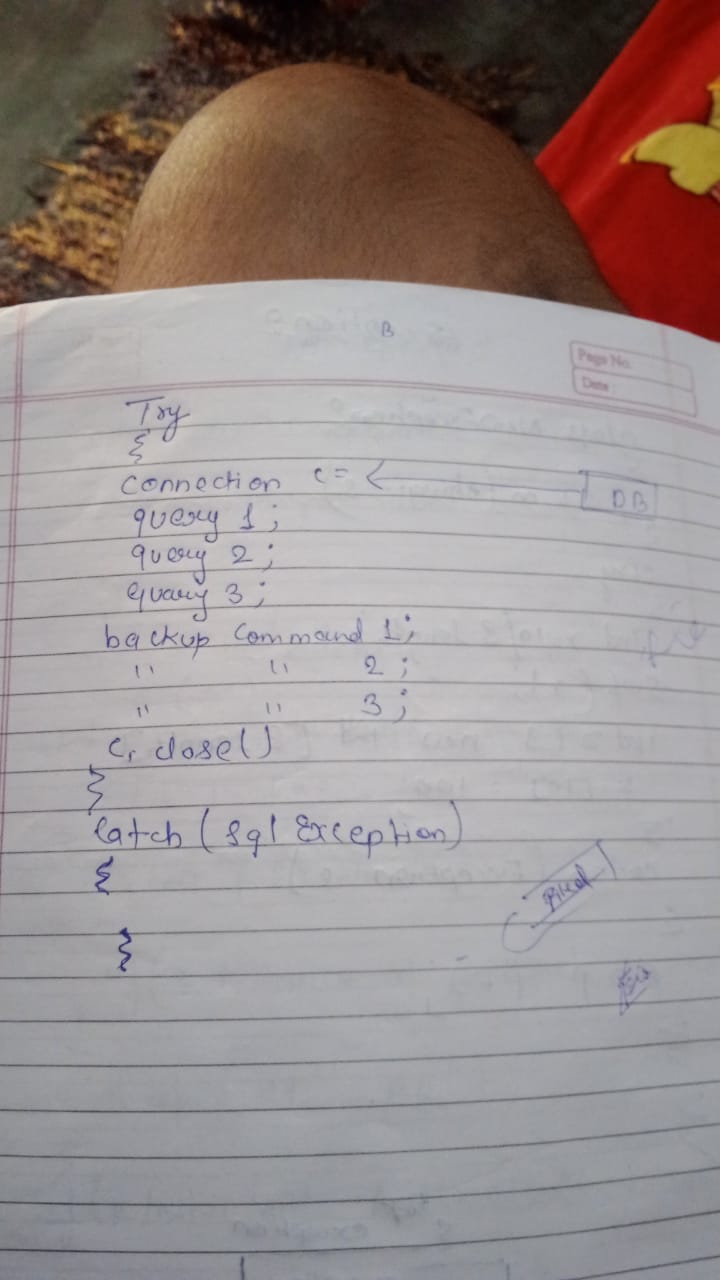 B
Page No.
Date :
Try
{
Connection c = ← DB
query 1 ;
query 2 ;
quary 3 ;
backup Command 1 ;
" " 2 ;
" " 3 ;
C. close()
}
Catch ( Sql Exception)
{
}